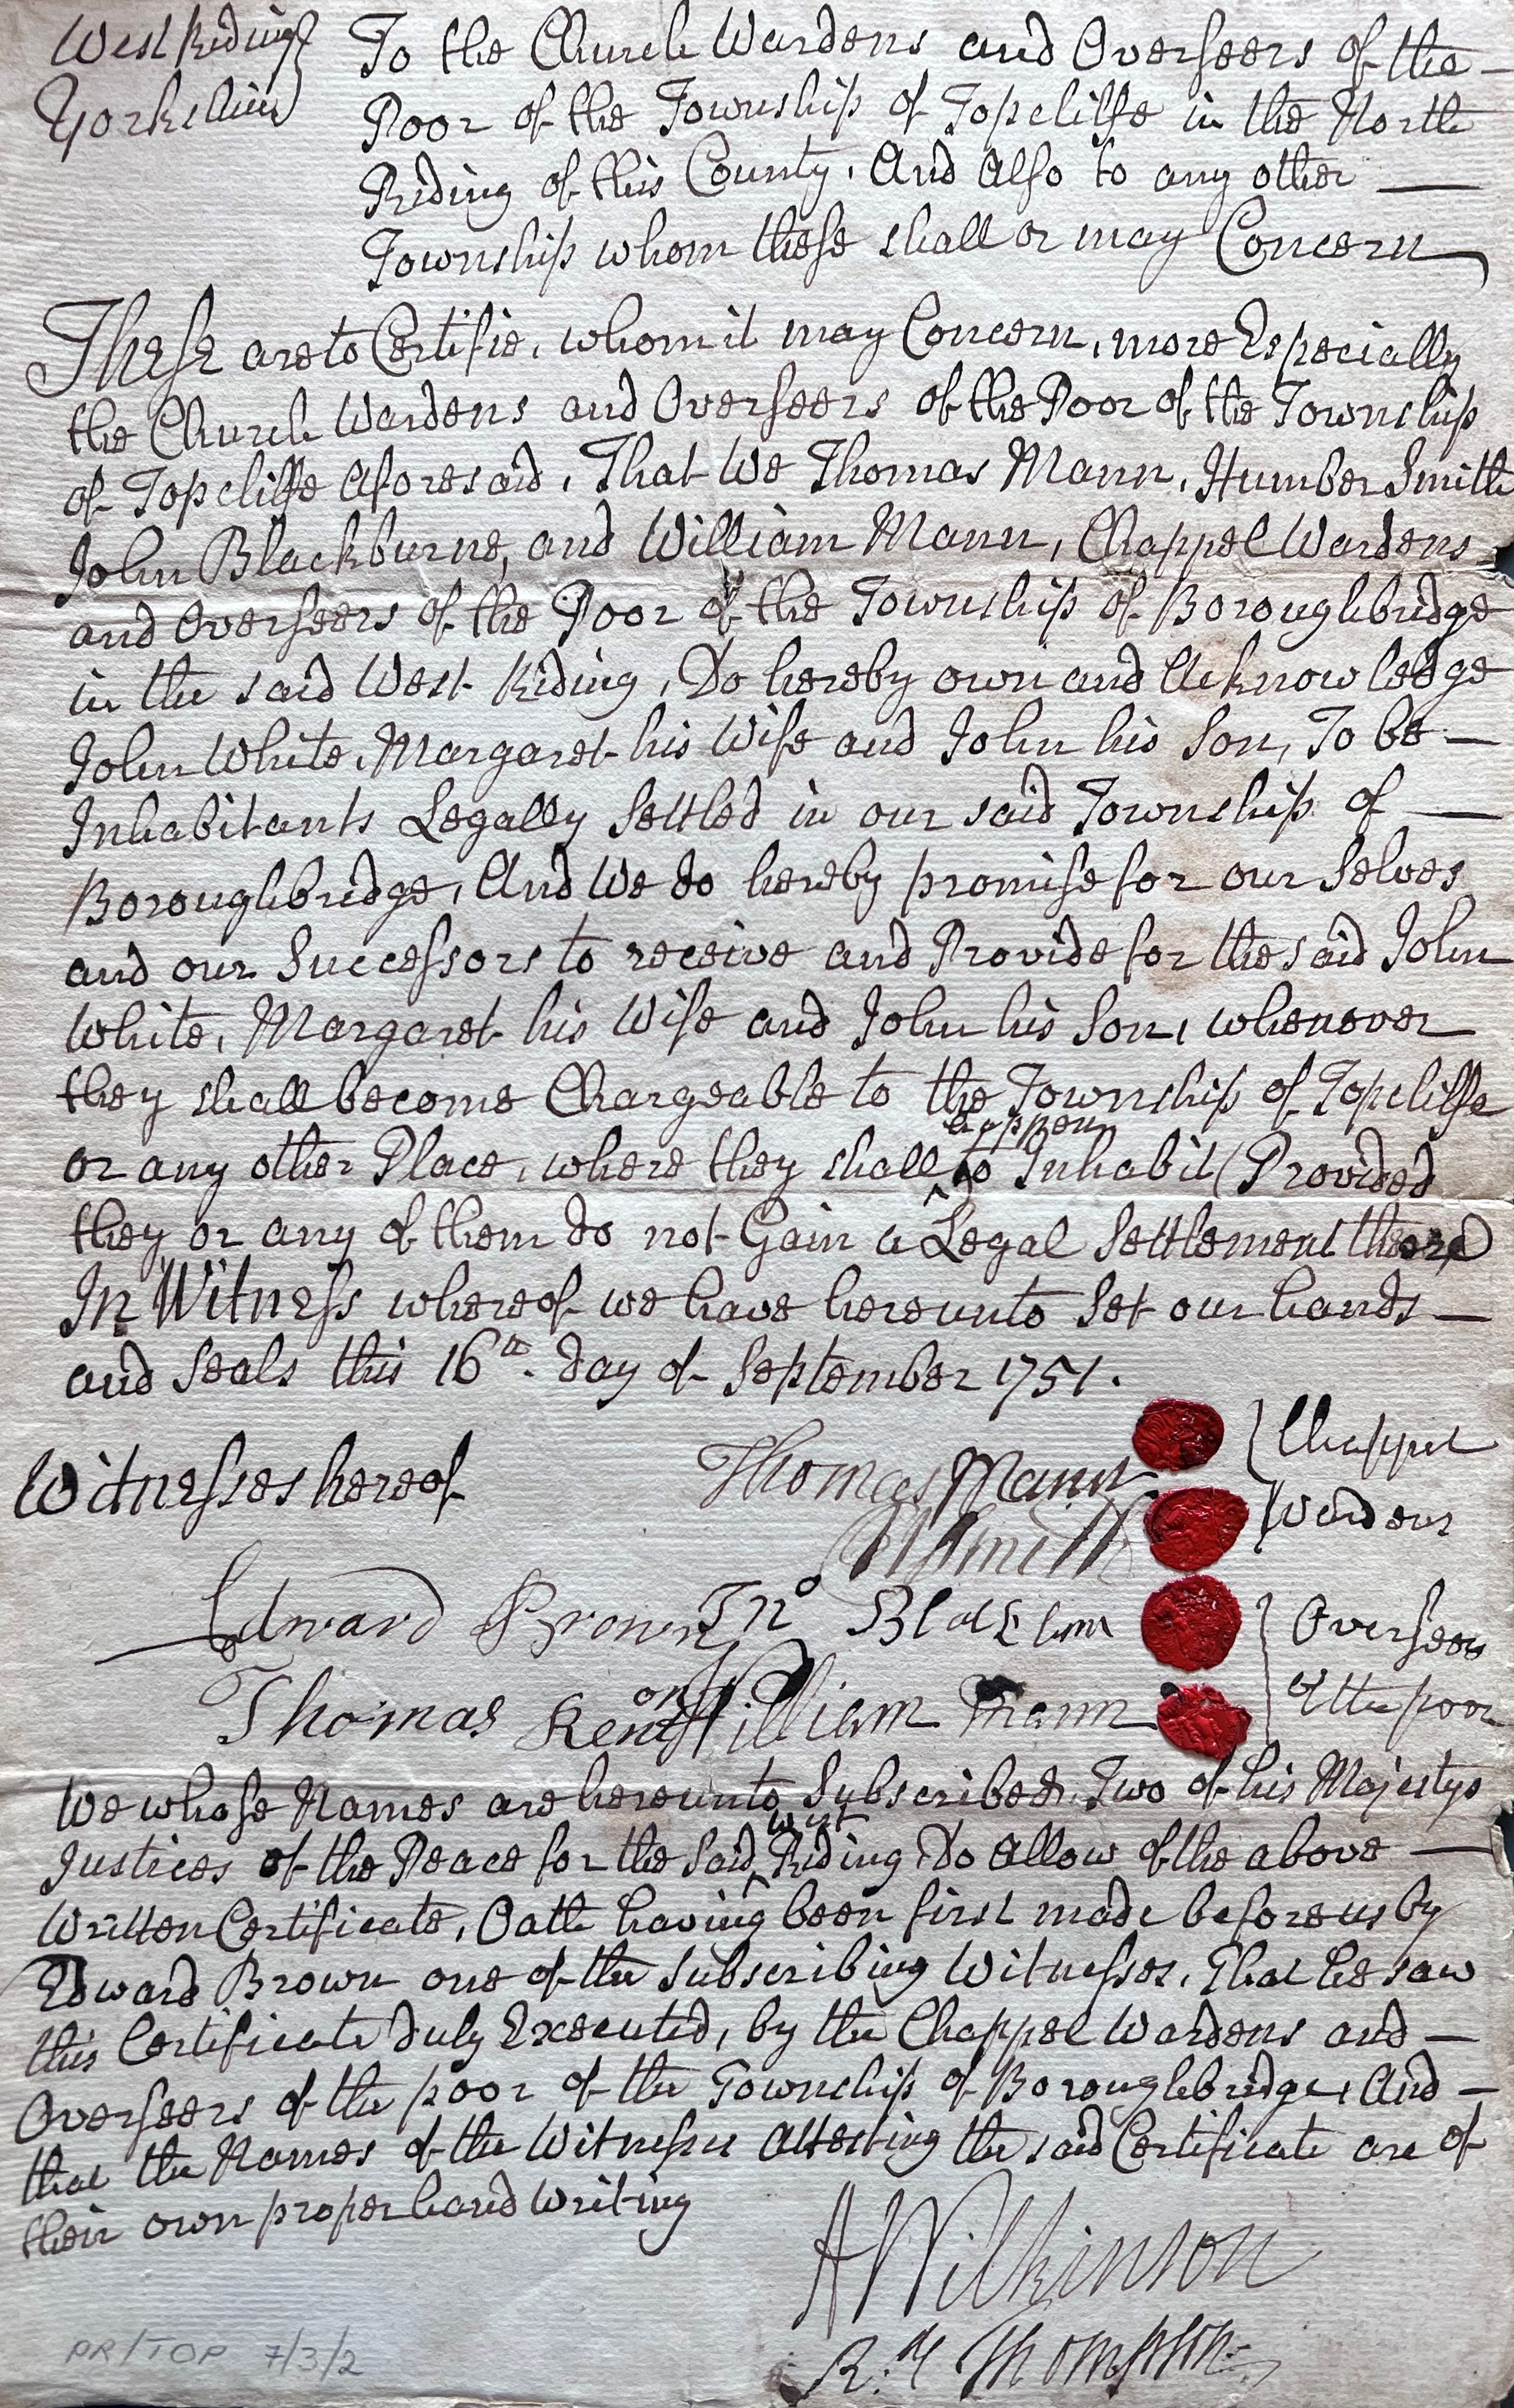 West Riding
Yorkshire
To the Church Wardens and Overseers of the
Poor of the Township of Topcliffe in the North
Riding of this County, And Also to any other
Township whom these shall or may Concern
These are to Certifie, whom it may Concern, more Especially
the Church Wardens and Overseers of the Poor of the Township
of Topcliffe Aforesaid, That We Thomas Mann, Humber Smith
John Blackburne, and William Mann, Chappel Wardens
and Overseers of the Poor of the Township of Boroughbridge
in the said West Riding, Do hereby own and Acknowledge
John White, Margaret his Wife and John his Son, To be
Inhabitants Legally Settled in our said Township of
Boroughbridge, And We do hereby promise for our Selves
and our Successors to receive and Provide for the said John
White, Margaret his Wife and John his Son, whenever
they shall become Chargeable to the Township of Topcliffe
happen
or any other Place, where they shall to Inhabit (Provided
they or any of them do not Gain a Legal Settlement there)
In Witness whereof we have hereunto Set our hands
and Seals this 16th day of September 1751.
Witnesses hereof
Thomas Mann
Chappel
Wardens
H Smith
Edward Brown
Jno Blackburn
Overseers
of the poor
Thomas
William Mann
We whose Names are hereunto Subscribed, Two of his Majestys
west
Justices of the Peace for the Said Riding Do Allow of the above
Written Certificate, Oath having been first made before us by
Edward Brown one of the Subscribing Witnesses, That he saw
this Certificate duly Executed, by the Chappel Wardens and
Overseers of the poor of the Township of Boroughbridge, And
that the Names of the Witnesses Attesting the said Certificate are of
their own proper hand Writing
A Wilkinson
Rd Thompson
PR/TOP 7/3/2